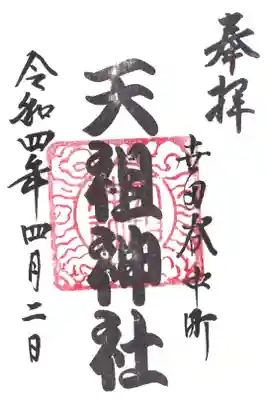 奉拝
町
天祖神社
令和四年四月二日